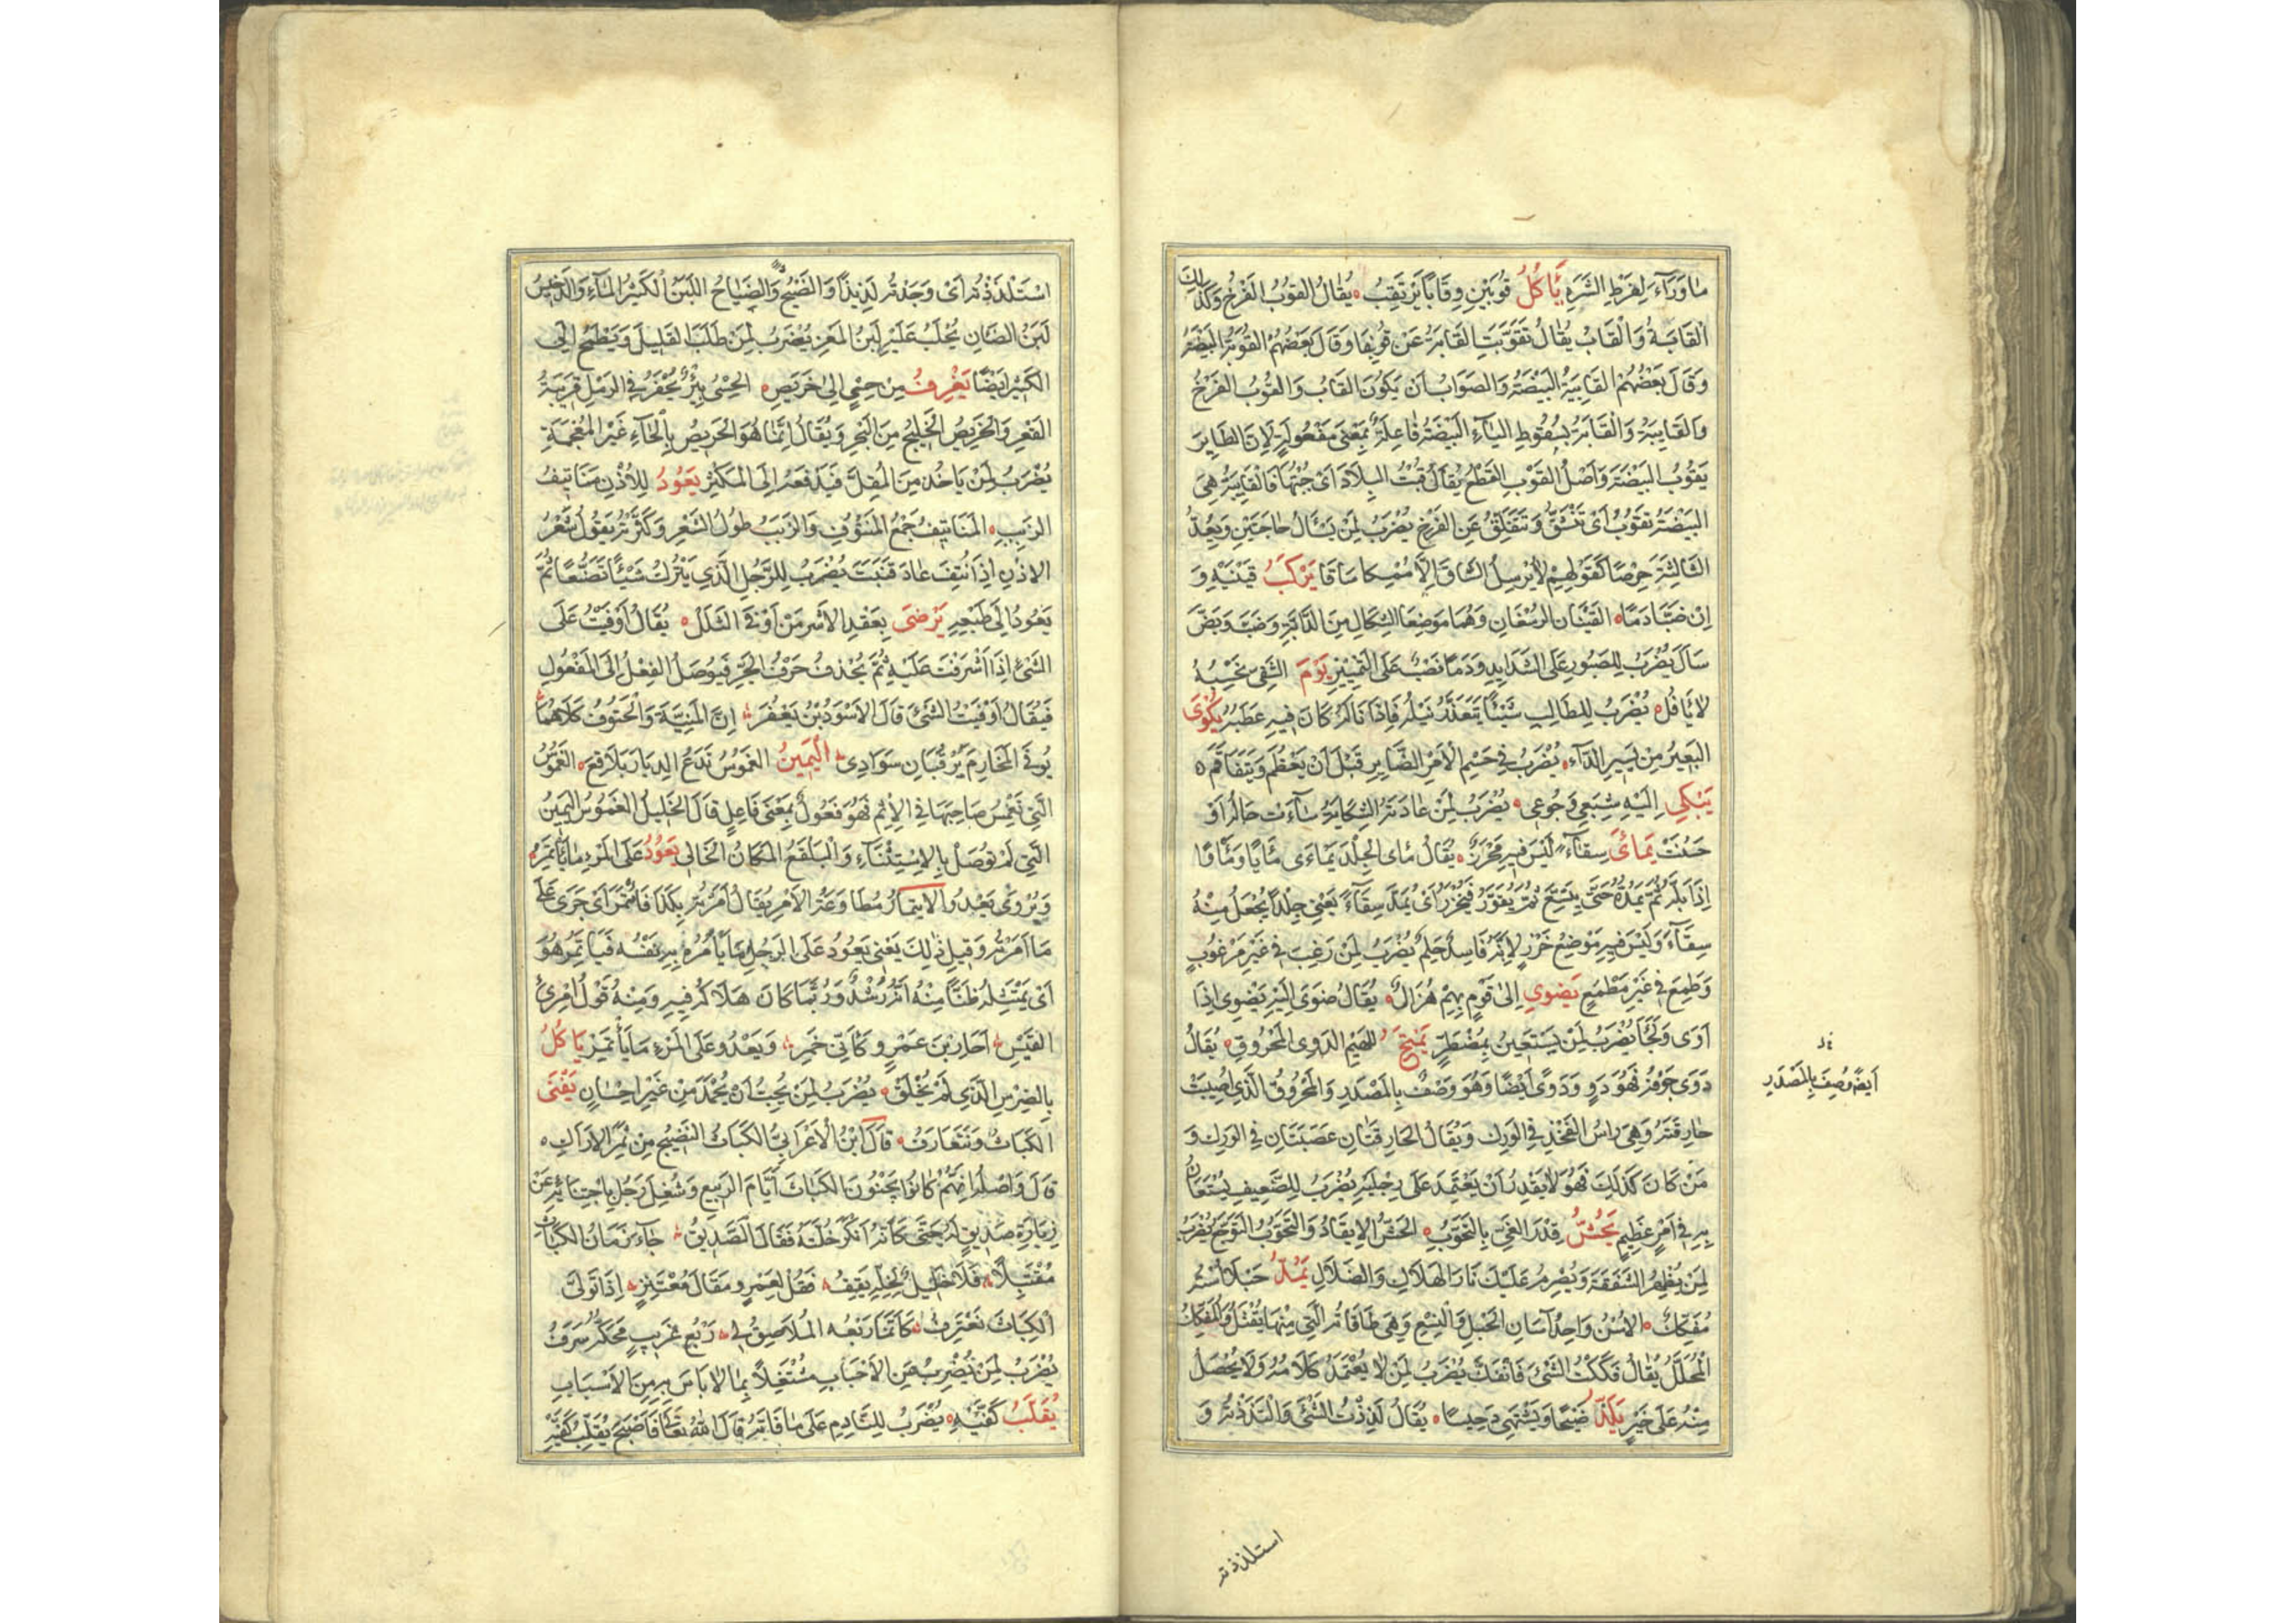 مٰا وَرَآءَ لِفَرْطِ الشَّرَهِ يَأكُلُ قُوبَيْنِ وَقٰابًا يَرْتَقِبُ يُقٰالُ القُوبُ الفَرْخُ وَكَذٰلِكَ
القَابَةُ وَالْقَابُ يُقٰالُ تَقَوَّبَتِ القَابَةُ عَنْ قُوبِهَا وَقَالَ بَعْضُهُمُ القُوبَةُ البَيْضَةُ
وَقَالَ بَعْضُهُمْ القَابِيَةُ البَيْضَةُ وَالصَوَابُ اَنْ يَكُونَ القَابُ وَالقُوبُ الفَرْخُ
وَالقَايبَةُ وَالْقَابَةُ بِسُقُوطِ اليٰآءِ البَيْضَةُ فٰاعِلَةٌ بِمَعْنَى مَفْعُولَةٍ لِاَنَّ الطَايِرَ
يَقُوبُ البَيْضَةَ وَاَصْلُ القَوْبِ القَطْعُ يُقَالُ قُبْتُ البِلَادَ اَىْ جُبْتُهَا فَالْقَايِبَةُ هِىَ
البَيْضَةُ تقَوَبُ اَىْ تَنْشَقُّ وَتَتَفَلَّقُ عَنِ الفَرْخِ يُضْرَبُ لِمَنْ يَسْأَلُ حاجَتَيْنِ وَيَعُدُّ
الثَّالِثَةَ حِرْصًا كَقَوْلِهِمْ لاٰ يُرْسِلُ السَّاقَ اِلَّا مُمْسِكا سَاقَا يَرْكَبُ قَيْنَيْهِ وَ
اِنْ ضَبَّا دَمًا القَيْنَانِ الرُسْغَانِ وَهُمَا مَوْضِعَا الشِكَالِ مِنَ الدَّابَّةِ وَضَبَّ وَبَضَّ
سَالَ يُضْرَبُ لِلصَبُورِ عَلَى الشَدَايِدِ وَدَمًا نَصْبٌ عَلَى التَمْيِيْزِ يَوْمَ الشَقِى نَحْسُهُ
لاٰ يَأفُلُ يُضْرَبُ لِلطَالِبِ شَيْئًا يَتَعَذَّرُ نَيْلُهُ فَاِذَا نَالَهُ كَانَ فِيهِ عَطَبُهُ يُكْوَى
البَعِيرُ مِنْ يَسِيرِ الدّآءِ يُضْرَبُ فِى حَسْمِ الاَمْرِ الضَّايِرِ قَبْلَ اَنْ يَعْظُمَ وَيَتَفَاقَمَ
يَبْكِى اِلَيْهِ شِبَعِى وَجُوعِى يُضْرَبُ لِمَنْ عٰادَتُهُ الشِكَايَةُ سٰآءَتْ حَالُهُ اَوْ
حَسُنَتْ يَمائَ سِقآءً لَيْسَ فِيهِ مَخْرَزٌ يُقَالُ مَاىَ الجِلْدَ يَمَاءَى مَأيًا وَمَأوًا
اِذَا بَلَّهُ ثُمَّ يَمُدُّهُ حَتَّى يَتَّسِعَ ثُمَّ يُقَوَّرُ فَيُخْرَزُ اَىْ يُمَدُّ سِقَآءً يَعْنِى جِلْدًا يُجْعَلُ مِنْهُ
سِقَآءً وَلَيْسَ فِيهِ مَوْضِعُ خَرْزٍ لِاَنَّهُ فَاسِدٌ حَلِمٌ يُضْرَبُ لِمَنْ رَغِبَ فِى غَيْرِ مَرْغُوبٍ
وَطَمِعَ فِى غَيْرِ مَطْمَعٍ يَضْوِى اِلىٰ قَوْمٍ بِهِمْ هُزَالٌ يُقَالُ ضَوَى اِلَيْهِ يَضْوِى اِذَا
اَوَى وَلَجَأَ يُضْرَبُ لِمَنْ يَسْتَعِينُ بِمُضْطَرٍّ للهَيْمِ الدَوِى المَحْرُوقِ يُقَالُ
دَوَى جَوْفُهُ فَهُوَ دَوٍ وَدَوًى اَيْضًا وَهُوَ وَصْفٌ بِالْمَصْدَرِ وَالْمَحْرُوقُ الَّذِى اُصِيبَتْ
حٰارِقَتُهُ وَهِىَ رَاسُ الفَخْذِ فِى الوَرِكِ وَيُقَالُ الحَارِقَتَانِ عَصَبَتَانِ فِى الوَرِكِ وَ
مَنْ كَانَ كَذَلِكَ فَهُوَ لاٰ يَقْدِرُ اَنْ يَعْتَمِدَ عَلَى رِجْلَيْهِ يُضْرَبُ لِلضَّعِيفِ يُسْتَعَانُ
بِهِ فِى اَمْرٍ عَظِيمٍ يَحُشُّ قِدْرَ الغَىِّ بِالتَحَوُّبِ الحَشُّ الاِيقَادُ وَالتَحَوُّبُ التَوَجُّعُ يُضْرَبُ
لِمَنْ يُظْهِرُ الشَفَقَةَ وَيُضْرِمُ عَلَيْكَ نَارَ الهَلَاكِ وَالضَلَالِ يَمُدُّ حَبْلًا اُسْنُهُ
مُفَكَّكٌ الاُسُنُ وَاحِدُ آسَانِ الحَبْلِ وَالنِسْعِ وَهِىَ طَاقَاتُهُ الَّتِى مِنْهَا يُفْتَلُ وَالْمُفَكَّكُ
الْمُحَلَّلُ يُقٰالُ فَكَكْتُ الشَّىْءَ فَانْفَكَّ يُضْرَبُ لِمَنْ لاٰ يُعْتَمَدُ كَلَامُهُ وَلَا يُحْصَلُ
مِنْهُ عَلَى خَيْرٍ يَلَذُّ ضَيْحًا وَيَشْتَهِى دَخِيسًا يُقَالُ لَذِذْتُ الشَّىْءَ وَالْتَذَذْتُهُ وَ
اَيضًا وُصِفَ بِالمَصْدَرِ
استلذذته
اسْتَلْذَذْتُهُ اَىْ وَجَدْتُهُ لَذِيذًا وَالضَيْحُ وَالضَيَاحُ اللَبَنُ الكَثِيرُ المَآءِ وَالدَخِيسُ
لَبَنُ الضَّانِ يُحْلَبُ عَلَيْهِ لَبَنُ المَعْزِ يُضْرَبُ لِمَنْ طَلَبَ القَلِيلَ وَيَطْمَحُ اِلَى
الكَثِيرِ اَيْضًا يَغْرِفُ مِنْ حِسْىٍ اِلىٰ خَرِيصٍ الحِسْىُ بِئْرٌ تُحْفَرُ فِى الرَمْلِ قَرِيبَةُ
القَعْرِ وَالخَرِيصُ الخَلِيجُ مِنَ البَحْرِ وَيُقَالُ اِنَّمَا هُوَ الحَرِيصُ بِالْحَآءِ غَيْرِ المُعْجَمَةِ
يُضْرَبُ لِمَنْ يَاخُذُ مِنَ المُقِلِّ فَيَدْفَعُهُ اِلَى الْمُكْثِرِ يَعُودُ لِلاُذْنِ مَنَاتِيفُ
الزَبَبِ المَنَاتِيفُ جَمْعُ المَنْتُوفِ وَالزَبَبُ طُولُ الشَعْرِ وَكَثْرَتُهُ يَقُولُ شَعْرُ
الاُذْنِ اِذَا نُتِفَ عَادَ فَنَبَتَ يُضْرَبُ لِلرَّجُلِ الَّذِى يَتْرُكُ شَيْئًا تَصَنُّعًا ثُمَّ
يَعُودُ اِلَى طَبْعِهِ يَرْضَى بِعَقْدِ الاَسْرِ مَنْ اَوْفَى الثَلَلْ يُقَالُ اَوْفَيْتُ عَلَى
الشَىْءِ اِذَا اَشْرَفْتَ عَلَيْهِ ثُمَّ يُحْذَفُ حَرْفُ الجَرِّ فَيُوصَلُ الفِعْلُ اِلَى المَفْعُولِ
فَيُقَالُ اَوْفَيْتُ الشَىْءَ قَالَ الاَسْوَدُ بْنُ يَعْفُرَ اِنَّ المَنِيَّةَ وَالحُتُوفَ كِلَاهُمَا
يُوفِى المَخَارِمَ يَرْقُبَانِ سَوَادِى اليَمِينُ الغَمُوسُ تَدَعُ الدِيَارَ بَلَاقِعَ الغَمُوسُ
الَّتِى تَغْمِسُ صَاحِبَهَا فِى الاِثْمِ فَهُوَ فَعُولٌ بِمَعْنَى فَاعِلٍ قَالَ الخَلِيلُ الغَمُوسُ اليَمِينُ
الَّتِى لَمْ تُوصَلْ بِالاِسْتِثْنَآءِ وَالْبَلْقَعُ المَكَانُ الخَالِى يَعُودُ عَلَى المَرْءِ مٰا يَأتَمِرُ
وَيُرْوَى يَعْدُو الاِيتِمَارُ مُطَاوَعَةُ الاَمْرِ يُقَالُ اَمَرْتُهُ بِكَذَا فَائْتَمَرَ اَىْ جَرَى عَلَى
مَا اَمَرْتُهُ وَقَبِلَ ذٰلِكَ يَعْنِى يَعُودُ عَلَى الرَجُلِ مَا يَأمُرُهُ بِهِ نَفْسُهُ فَيَأتَمِرُ هُوَ
اَىْ يَمْتَثِلُهُ ظَنًّا مِنْهُ اَنَّهُ رُشْدٌ وَرُبَّمَا كَانَ هَلَاكُهُ فِيهِ وَمِنْهُ قَوْلُ امْرِئِ
القَيْسِ اَحَارِ بْنَ عَمْرٍو كَاَنِّى خَمِرْ وَيَعْدُو عَلَى المَرْءِ مَا يَأتَمِرْ يَاكُلُ
بِالضِرْسِ الَّذِى لَمْ يُخْلَقْ يُضْرَبُ لِمَنْ يُحِبُّ اَنْ يُحْمَدَ مِنْ غَيْرِ اِحْسَانٍ يَفْنَى
الكَبَاثُ وَنَتَعَارَفُ قَالَ ابْنُ الاَعْرَابِىِّ الكَبَاثُ النَضِيجُ مِنْ ثَمَرِ الاَرَاكِ
قَالَ وَاَصْلُهُ اَنَّهُمْ كَانُوا يَجْتَنُونَ الكَبَاثَ اَيَّامَ الرَبِيعِ وَشُغِلَ رَجُلٌ بِاجْتِنَائِهِ عَنْ
زِيَارَةِ صَدِيقٍ لَهُ حَتَّى كَاَنَّهُ اَنْكَرَ خُلَّتَهُ فَقَالَ الصَدِيقُ جَآءَ زَمَانُ الكَبَاثِ
مُقْتَبِلًا فَلَا خَلِيلٌ لِخِلِّهِ يَقِفُ فَقُلْ لِعَمْرٍو مَقَالَ مُعْتَبِرٍ اِذَا تَوَلَّى
الْكَبَاثُ نَعْتَرِفُ كَاَنَّمَا رَبْعُهُ المُلَاصِقُ لِى رَبْعُ غَرِيبٍ مَحَلُّهُ سَرَفُ
يُضْرَبُ لِمَنْ يُضْرِبُ عَنِ الاَحْبَابِ مُشْتَغِلًا بِمَا لاٰ بَاسَ بِهِ مِنَ الاَسْبَابِ
يُقَلِّبُ كَفَّيْهِ يُضْرَبُ لِلنَّادِمِ عَلَى مٰا فَاتَهُ قَالَ اللهُ تَعَالَى فَاَصْبَحَ يُقَلِّبُ كَفَّيْهِ